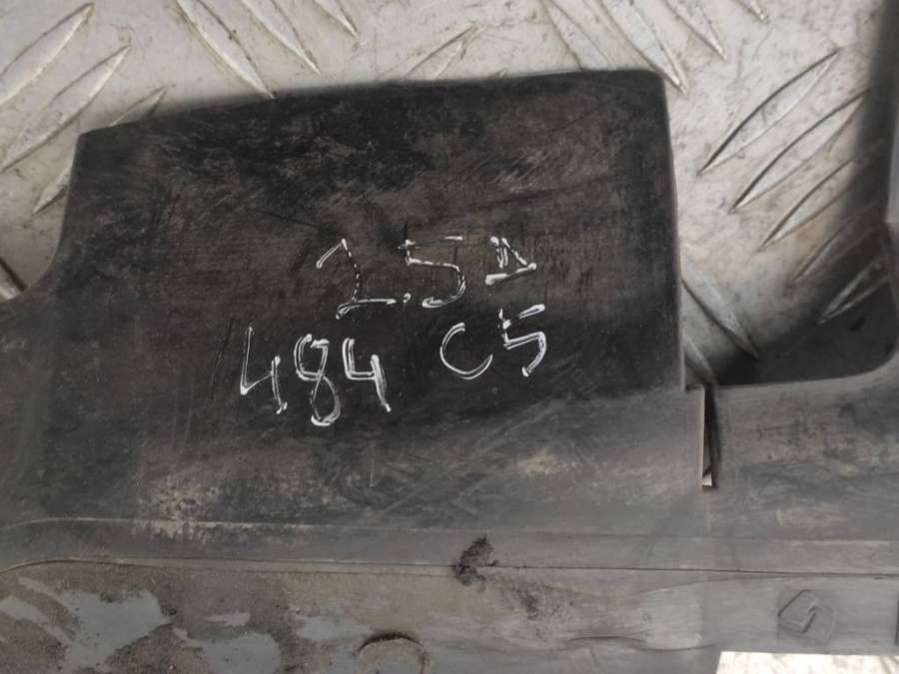 2.5 Д
484 C5